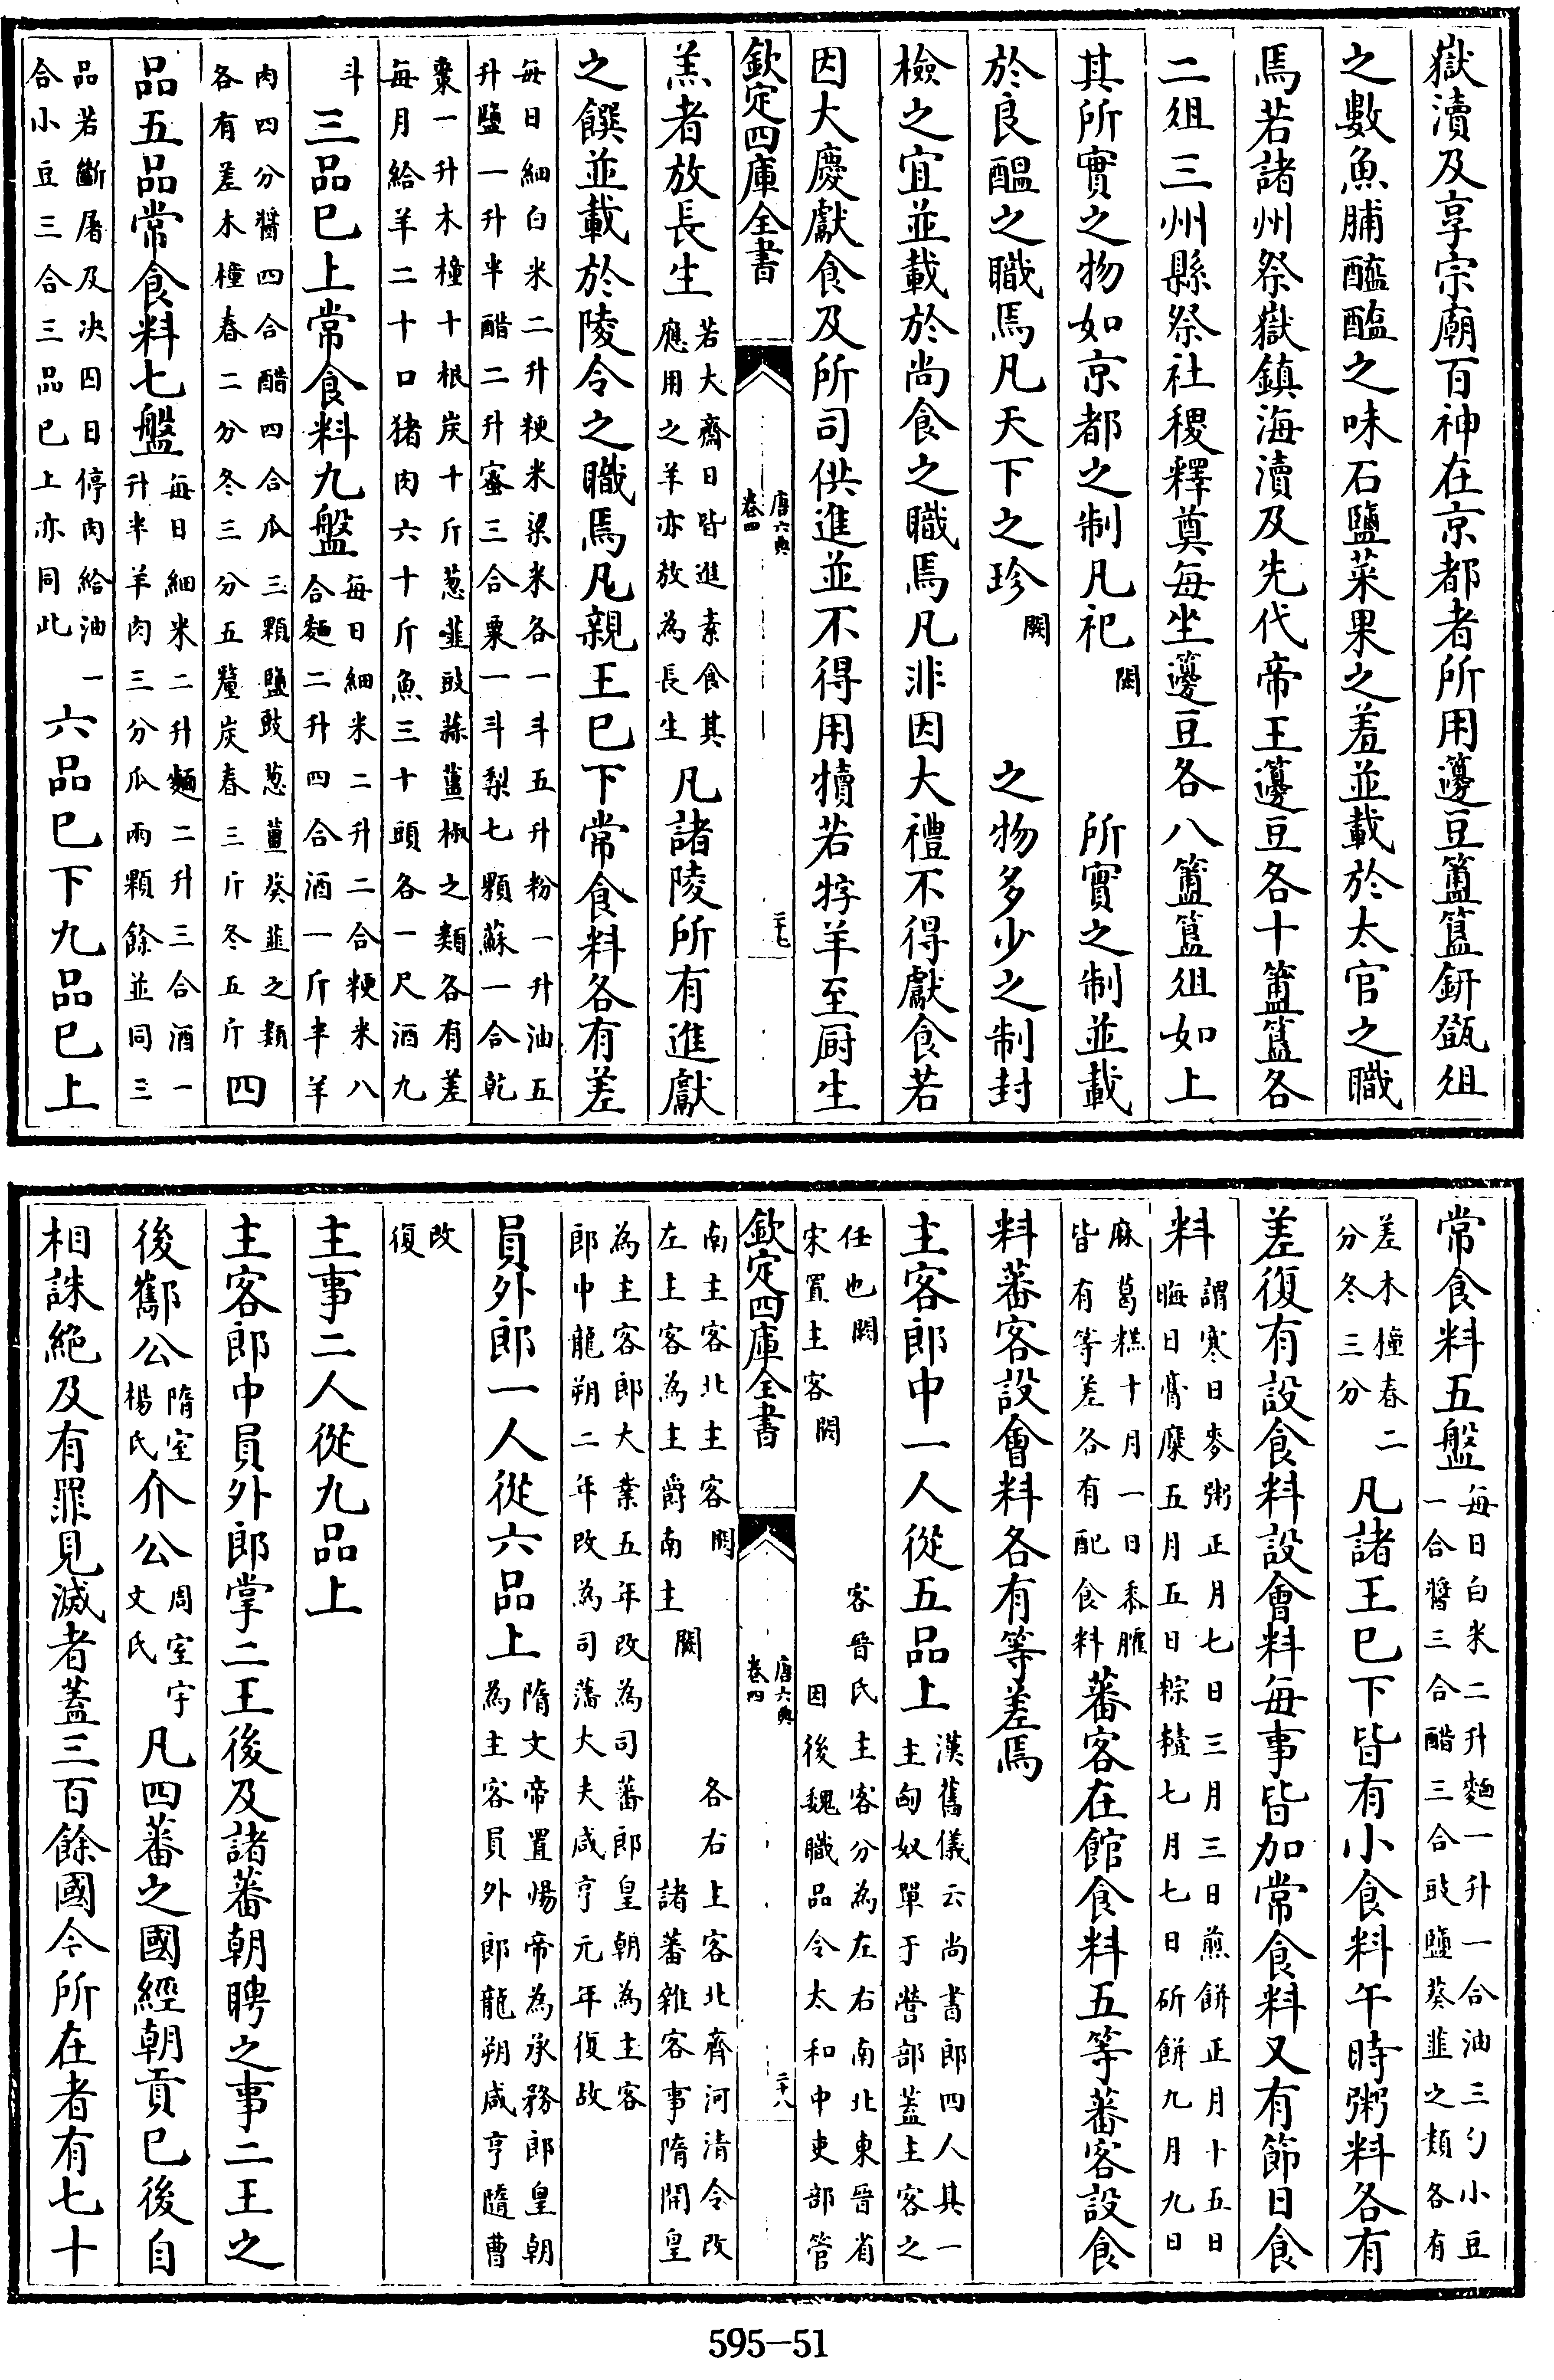 嶽瀆及享宗廟百神在京都者所用籩豆簠簋鈃㽅俎
之數魚脯醢醯之味石鹽菜果之羞並載於太官之職
焉若諸州祭嶽鎮海瀆及先代帝王籩豆各十簠簋各
二俎三州縣祭社稷釋奠每坐籩豆各八簠簋俎如上
其所實之物如京都之制凡祀闕所實之制並載
於良醖之職焉凡天下之珍闕之物多少之制封
檢之宜並載於尚食之職焉凡非因大禮不得獻食若
因大慶獻食及所司供進並不得用犢若牸羊至厨生
欽定四庫全書
唐六典
卷四
二十七
羔者放長生
若大齋日皆進素食其
應用之羊亦放為長生
凡諸陵所有進獻
之饌並載於陵令之職焉凡親王已下常食料各有差
每日細白米二升粳米粱米各一斗五升粉一升油五
升鹽一升半醋二升蜜三合粟一斗梨七顆蘇一合乾
棗一升木橦十根炭十斤葱韮豉蒜薑椒之類各有差
每月給羊二十口猪肉六十斤魚三十頭各一尺酒九
斗
三品已上常食料九盤
每日細米二升二合粳米八
合麵二升四合酒一斤半羊
肉四分醬四合醋四合瓜三顆鹽豉葱薑葵韮之類
各有差木橦春二分冬三分五釐炭春三斤冬五斤
四
品五品常食料七盤
每日細米二升麵二升三合酒一
升半羊肉三分瓜兩顆餘並同三
品若斷屠及决囚日停肉給油一
合小豆三合三品已上亦同此
六品已下九品已上
常食料五盤
每日白米二升麵一升一合油三勺小豆
一合醬三合醋三合豉鹽葵韮之類各有
差木橦春二
分冬三分
凡諸王已下皆有小食料午時粥料各有
差復有設食料設會料每事皆加常食料又有節日食
料
謂寒日麥粥正月七日三月三日煎餅正月十五日
晦日膏糜五月五日粽䊦七月七日斫餅九月九日
麻葛糕十月一日黍臛
皆有等差各有配食料
蕃客在館食料五等蕃客設食
料蕃客設會料各有等差焉
主客郎中一人從五品上
漢舊儀云尚書郎四人其一
主匈奴單于營部蓋主客之
任也闕客晉氏主客分為左右南北東晉省
宋置主客闕因後魏職品令太和中吏部管
欽定四庫全書
唐六典
卷四
二十八
南主客北主客闕各右上客北齊河清令改
左上客為主爵南主闕諸蕃雜客事隋開皇
為主客郎大業五年改為司蕃郎皇朝為主客
郎中龍朔二年改為司藩大夫咸亨元年復故
員外郎一人從六品上
隋文帝置煬帝為承務郎皇朝
為主客員外郎龍朔咸亨隨曹
改
復
主事二人從九品上
主客郎中員外郎掌二王後及諸蕃朝聘之事二王之
後酅公
隋室
楊氏
介公
周室宇
文氏
凡四蕃之國經朝貢已後自
相誅絶及有罪見滅者蓋三百餘國今所在者有七十
595—51